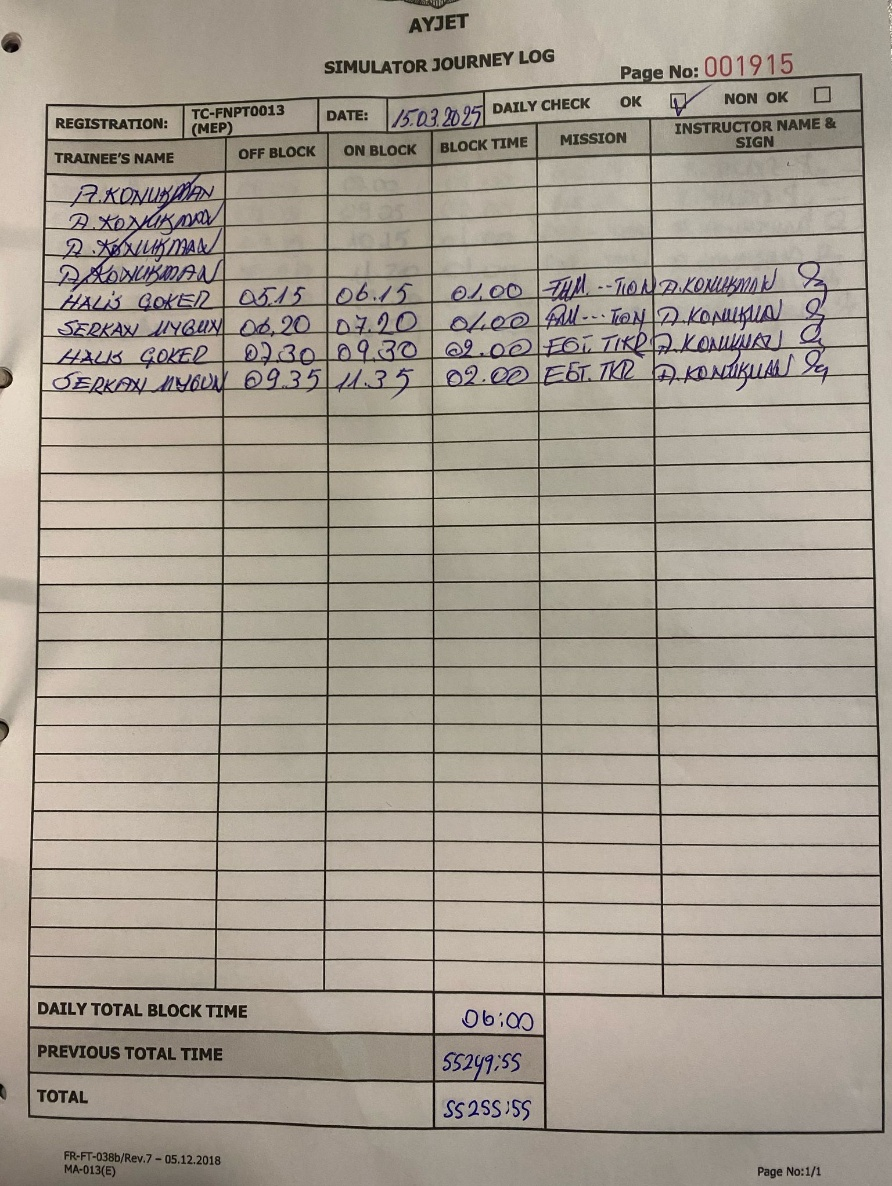 AYJET
SIMULATOR JOURNEY LOG
Page No: 001915
REGISTRATION: TC-FNPT0013 (MEP) DATE: 15.03.2025 DAILY CHECK OK NON OK
TRAINEE'S NAME OFF BLOCK ON BLOCK BLOCK TIME MISSION INSTRUCTOR NAME & SIGN
A.KONUKMAN
A.KONUKMAN
A.KONUKMAN
A.KONUKMAN
HALİS GOKER 05.15 06.15 01.00 A.KONUKMAN
SERKAN UYGUN 06.20 07.20 01.00 A.KONUKMAN
HALİS GOKER 07.30 09.30 02.00 A.KONUKMAN
SERKAN UYGUN 09.35 11.35 02.00 A.KONUKMAN
DAILY TOTAL BLOCK TIME 06:00
PREVIOUS TOTAL TIME 55249:55
TOTAL 55255:55
FR-FT-038b/Rev.7 – 05.12.2018
MA-013(E)
Page No:1/1